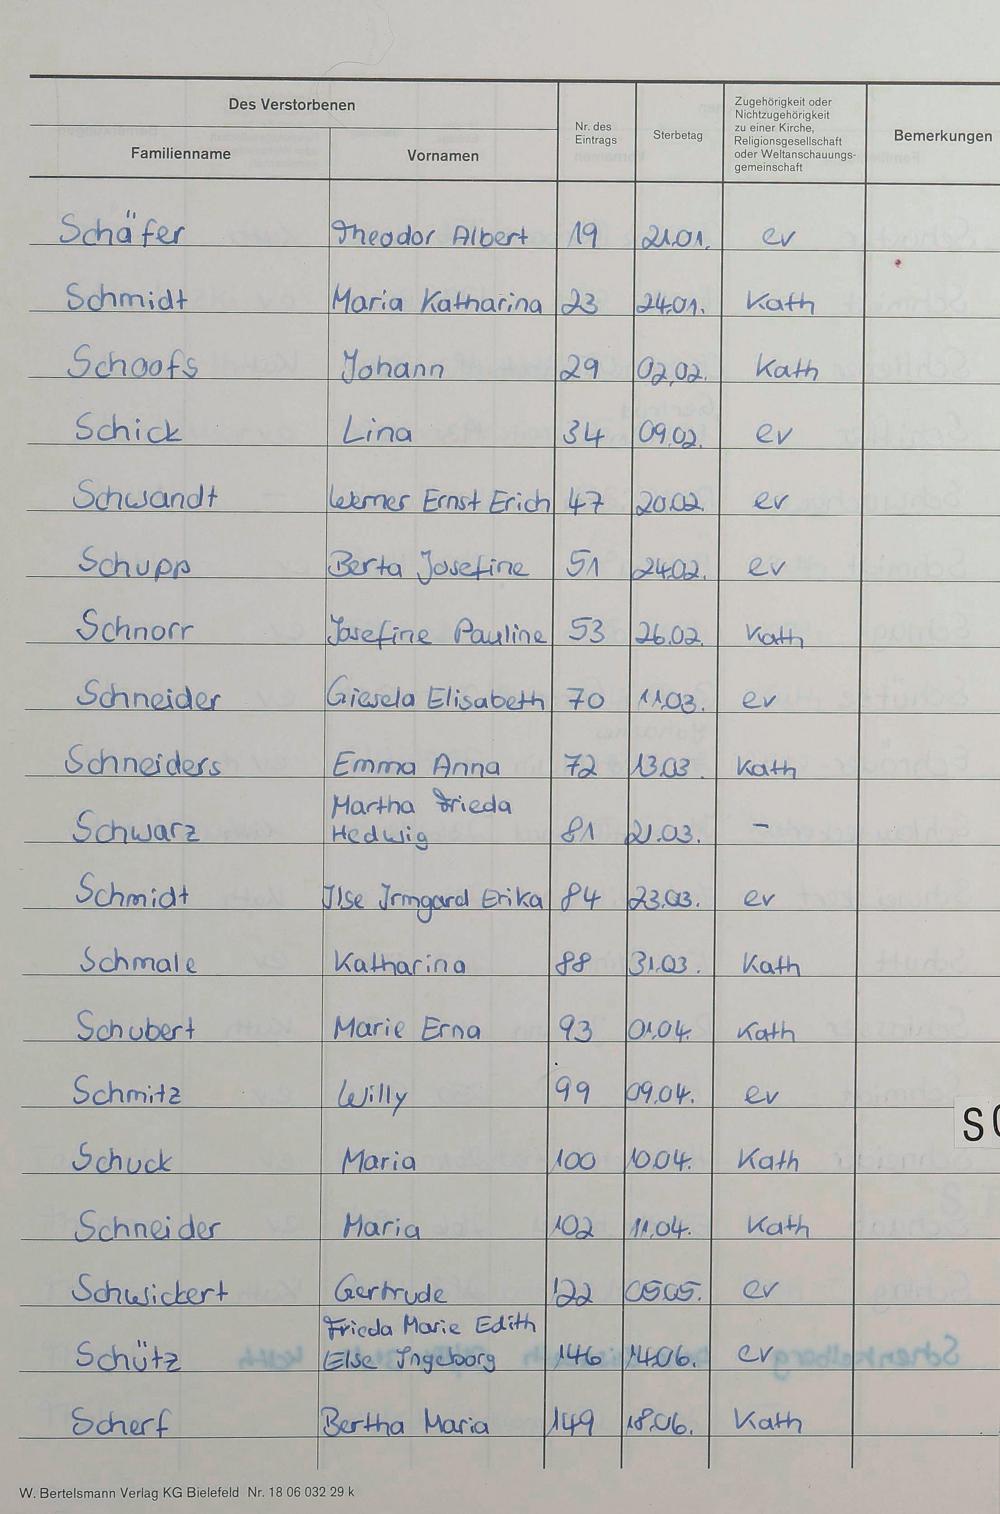 Des Verstorbenen
Familienname Vornamen Nr. des Eintrags Sterbetag Zugehörigkeit oder Nichtzugehörigkeit zu einer Kirche, Religionsgesellschaft oder Weltanschauungs-gemeinschaft Bemerkungen
Schäfer Theodor Albert 19 21.01. ev
Schmidt Maria Katharina 23 24.01. Kath
Schoofs Johann 29 02.02. Kath
Schick Lina 34 09.02. ev
Schwandt Werner Ernst Erich 47 20.02. ev
Schupp Berta Josefine 51 24.02. ev
Schnorr Josefine Pauline 53 26.02. Kath
Schneider Giesela Elisabeth 70 11.03. ev
Schneiders Emma Anna 72 13.03. Kath
Martha Frieda
Schwarz Hedwig 81 21.03. –
Schmidt Ilse Irmgard Erika 84 23.03. ev
Schmale Katharina 88 31.03. Kath
Schubert Marie Erna 93 01.04. Kath
Schmitz Willy 99 09.04. ev
Schuck Maria 100 10.04. Kath
Schneider Maria 102 11.04. Kath
Schwickert Gertrude 122 05.05. ev
Frieda Marie Edith
Schütz Else Ingeborg 146 14.06. ev
Scherf Bertha Maria 149 18.06. Kath
W. Bertelsmann Verlag KG Bielefeld Nr. 18 06 032 29 k